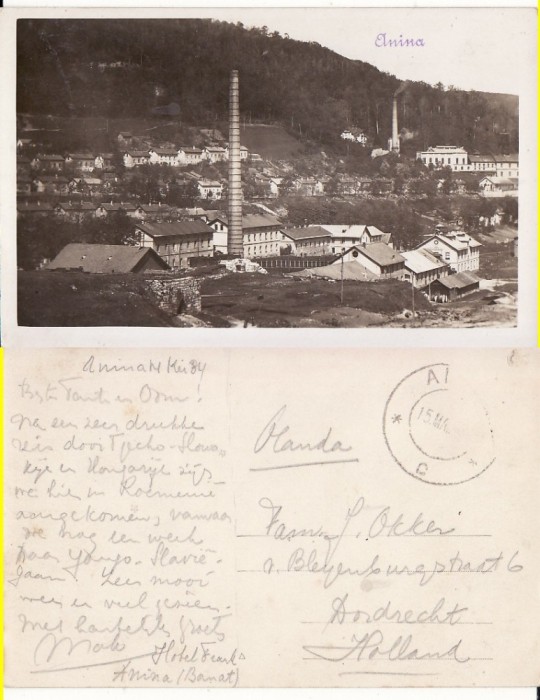 Anina
Anina 14
Beste Tante en Oom!
Na een zeer drukke
reis door Tjecho-Slowa-
kije en Hongarije zijn
we hier in Roemenië
aangekomen, vanwaar
we nog een week
naar Yougo-Slavië
gaan. Zeer mooi
weer en veel gezien.
Met hartelijke groets
Hotel
Anina (Banat)
Olanda
Fam. J. Okker
v. Bleyenburgstraat 6
Dordrecht
Holland
AI
15